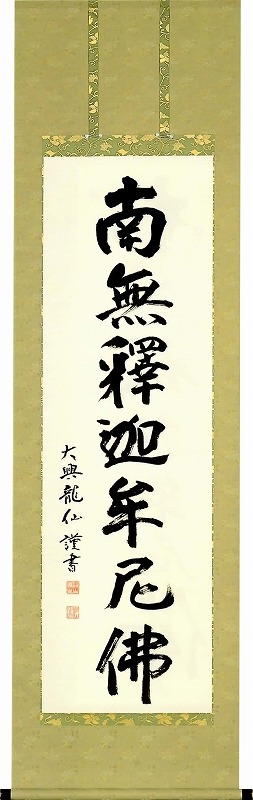 南無釋迦牟尼佛
大興龍仙謹書